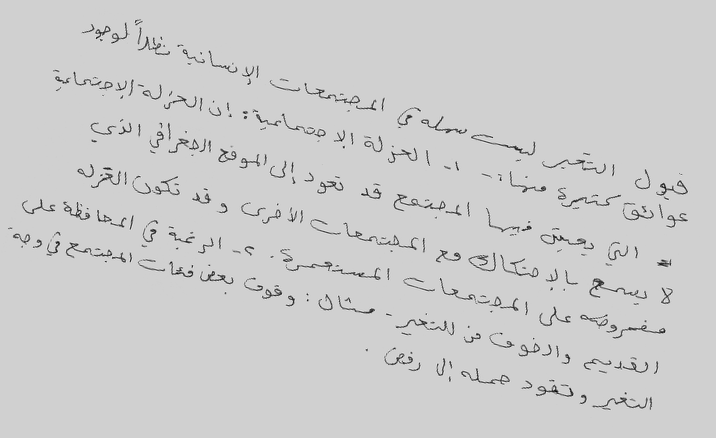 قبول التغير ليست سهله في المجتمعات الإنسانية نظراً لوجود
عوائق كثيرة منها :- ١- العزلة الاجتماعية : إن العزلة الاجتماعية
التي يعيش فيها المجتمع قد تعود إلى الموقع الجغرافي الذي
لا يسمح بالإحتكاك مع المجتمعات الأخرى وقد تكون العزله
مفروضه على المجتمعات المستعمرة . ٢- الرغبة في المحافظة على
القديم والخوف من التغير - مثال : وقوف بعض فئات المجتمع في وجه
التغير وتقود حمله إلى رفض .